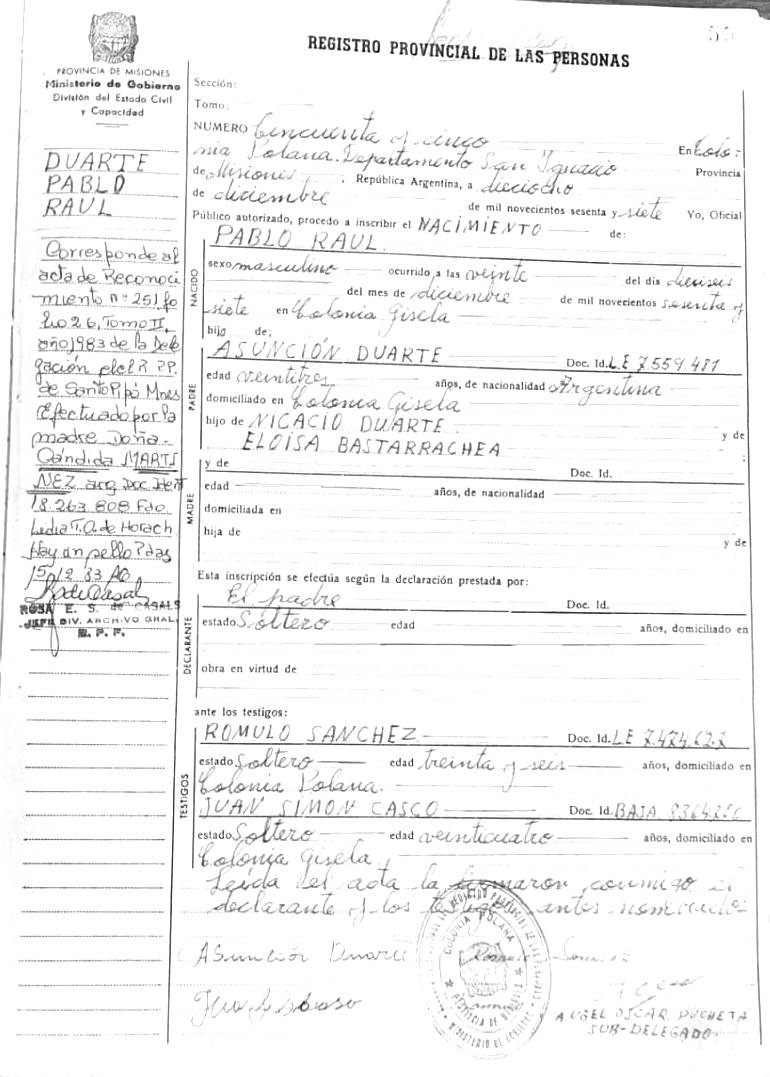 55
REGISTRO PROVINCIAL DE LAS PERSONAS
PROVINCIA DE MISIONES
Ministerio de Gobierno
División del Estado Civil
y Capacidad
DUARTE
PABLO
RAUL
Corresponde al
acta de Reconoci
miento nº 251 fo
lio 26, Tomo II,
año 1983 de la Dele
gación del R PP.
de Santo Pipó Mnes
Efectuado por la
madre Doña
Cándida MARTI
NEZ arg Doc Ident
18.263.808 Fdo
Lidia T.O. de Horach
Hay un sello
15/12 83
ROSA E. S. de CASALS
JEFE DIV. ARCHIVO GRAL.
R. P. P.
Sección:
Tomo:
NUMERO Cincuenta y cinco En Colo:
nia Polana. Departamento San Ignacio Provincia
de Misiones, República Argentina, a dieciocho
de diciembre de mil novecientos sesenta y siete Yo, Oficial
Público autorizado, procedo a inscribir el NACIMIENTO de:
NACIDO
PABLO RAUL.
sexo masculino ocurrido a las veinte del día dieciseis
del mes de diciembre de mil novecientos sesenta y
siete en Colonia Gisela
hijo de;
PADRE
ASUNCIÓN DUARTE Doc. Id. L.E 7.559.481
edad veintitres años, de nacionalidad Argentina
domiciliado en Colonia Gisela
hijo de NICACIO DUARTE y de
ELOISA BASTARRACHEA ;
MADRE
y de Doc. Id.
edad años, de nacionalidad
domiciliada en
hija de y de
Esta inscripción se efectúa según la declaración prestada por:
DECLARANTE
El padre Doc. Id.
estado Soltero edad años, domiciliado en
obra en virtud de
ante los testigos:
TESTIGOS
ROMULO SANCHEZ Doc. Id. LE 7.474.627
estado Soltero edad treinta y seis años, domiciliado en
Colonia Polana.
JUAN SIMON CASCO Doc. Id. BAJA 8364250
estado Soltero edad veinticuatro años, domiciliado en
Colonia Gisela,
Leída el acta la firmaron conmigo el
declarante y los testigos antes nombrado-
Asunción Duarte
COLONIA POLANA
PROVINCIA DE MISIONES
MINISTERIO DE GOBIERNO
ANGEL OSCAR DUCHETA
SUB-DELEGADO